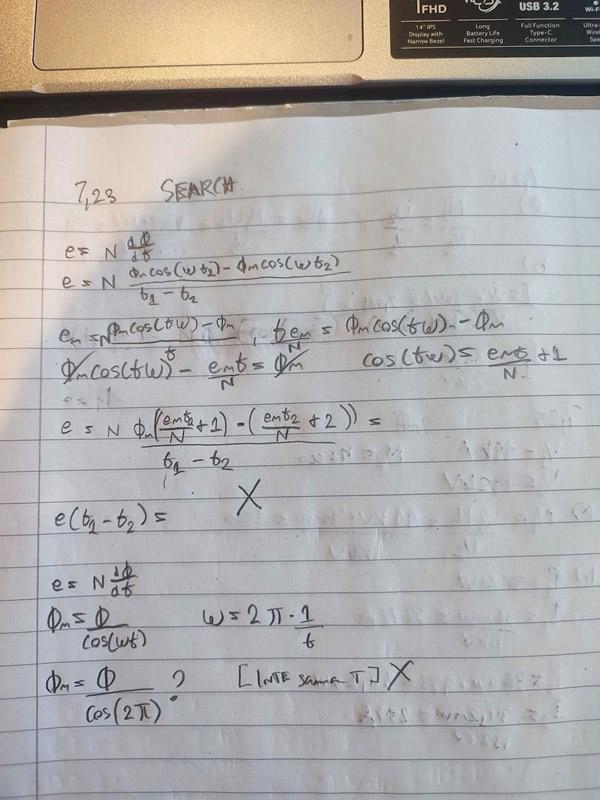 FHD
14" IPS
Display with
Narrow Bezel
Long
Battery Life
Fast Charging
USB 3.2
Full Function
Type-C
Connector
7,23 SEARCH
e = N dΦ/dt
e = N (Φm cos(ωt1) - Φm cos(ωt2))/(t1 - t2)
em = N (Φm cos(tω) - Φm)/t , t em/N = Φm cos(tω) - Φm
Φm cos(tω) - emt/N = Φm cos(tω) = emt/N + 1
e = N Φm((emt2/N + 1) - (emt2/N + 2))/(t1 - t2) =
e(t1 - t2) = X
e = N dΦ/dt
Φm = Φ/cos(ωt) ω = 2π · 1/t
Φm = Φ/cos(2π) ? [INTE samma T] X